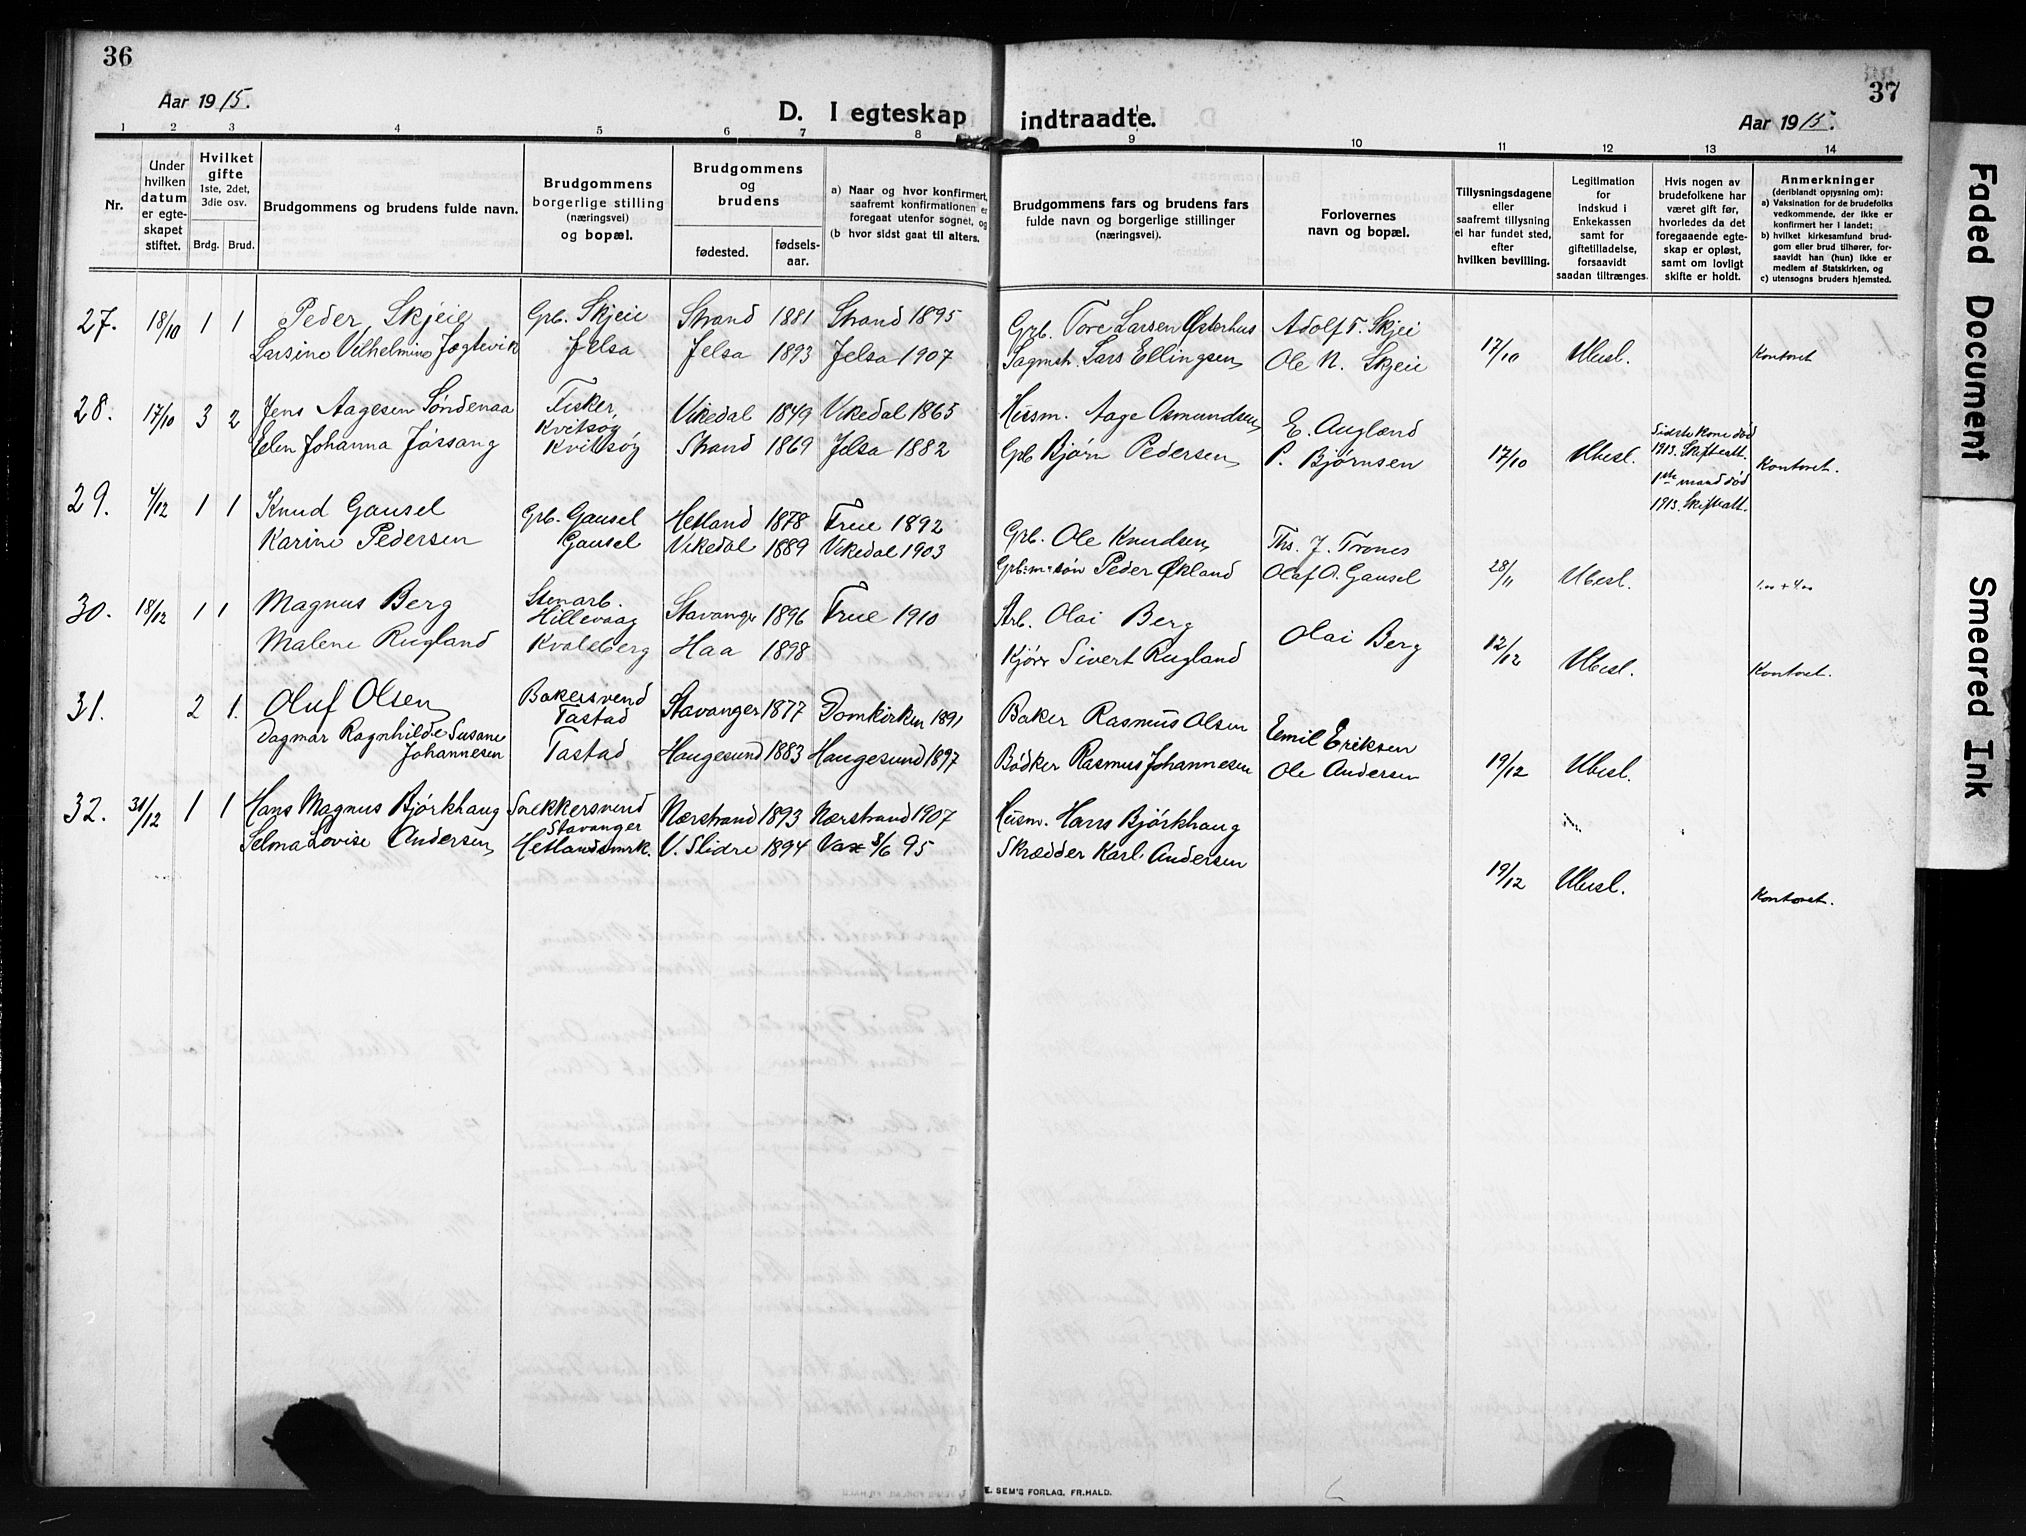 36
Aar 1915.
D. I egteskap indtraadte.
37
Aar 1915.
1 2 3 4 5 6 7 8 9 10 11 12 13 14
Nr.
Under hvilken datum er egteskapet stiftet.
Hvilket gifte 1ste, 2det, 3die osv.
Brdg. Brud.
Brudgommens og brudens fulde navn.
Brudgommens borgerlige stilling (næringsvei) og bopæl.
Brudgommens og brudens
fødested.
fødselsaar.
a) Naar og hvor konfirmert, saafremt konfirmationen er foregaat utenfor sognet, og
(b hvor sidst gaat til alters.
Brudgommens fars og brudens fars fulde navn og borgerlige stillinger (næringsvei).
Forlovernes navn og bopæl.
Tillysningsdagene eller saafremt tillysning ei har fundet sted, efter hvilken bevilling.
Legitimation for indskud i Enkekassen samt for giftetilladelse, forsaavidt saadan tiltrænges.
Hvis nogen av brudefolkene har været gift før, hvorledes da det foregaaende egteskap er opløst, samt om lovligt skifte er holdt.
Anmerkninger (deriblandt opyysning om):
a) Vaksination for de brudefolks vedkommende, der ikke er konfirmert her i landet;
b) hvilket kirkesamfund brudgom eller brud tilhører, forsaavidt han (hun) ikke er medlem af Statskirken, og
c) utensogns bruders hjemsted.
27. 18/10 1 1 Peder Skjeie Grb. Skjeie Strand 1881 Strand 1895 Grb. Tore Larsen Østerhus Adolf T. Skjei
Larsine Vilhelmine Jøgtevik Jelsa Jelsa 1893 Jelsa 1907 Sagmst. Lars Ellingsen Ole N. Skjeie 17/10 Ubesl. Kontoret
28. 17/10 3 2 Jens Aagesen Søndenaa Fisker, Kvitsøy Vikedal 1849 Vikedal 1865 Husm. Aage Osmundsen E. Augland
Elen Johanna Jøssang Kvitsøy Strand 1869 Jelsa 1882 Grb Bjørn Pedersen P. Bjørnsen 17/10 Ubesl. Sidste kone død 1913. Skifteatt. 1ste mand død 1913. Skifteatt. Kontoret.
29. 4/12 1 1 Knud Gausel Grb. Gausel Hetland 1878 Frue 1892 Grb. Ole Knudsen Ths. J. Trones
Karine Pedersen Gausel Vikedal 1889 Vikedal 1903 Grb: m: søn Peder Økland Olaf O. Gausel 28/11 Ubesl. 1.00 + 4.00
30. 18/12 1 1 Magnus Berg Stenarb. Hillevaag Stavanger 1896 Frue 1910 Arb. Olai Berg Olai Berg
Malene Rugland Kvaleberg Haa 1898 Kjørr Sivert Rugland 12/12 Ubesl. Kontoret.
31. 2 1. Oluf Olsen Bakersvend Tastad Stavanger 1877 Domkirken 1891 Baker Rasmus Olsen Emil Eriksen
Dagmar Ragnhilde Susane Johannesen Tastad Haugesund 1883 Haugesund 1897 Bødker Rasmus Johannesen Ole Andersen 19/12 Ubesl.
32. 31/12 1 1 Hans Magnus Bjørkhaug Snekkersvend Stavanger Nærstrand 1893 Nærstrand 1907 Husm. Hans Bjørkhaug
Selma Lovise Andersen Hetlandsmrk. V. Slidre 1894 Vax 8/6 95 Skrædder Karl Andersen 19/12 Ubesl. Kontoret.
E. SEM'S FORLAG, FR.HALD.
Faded Document
Smeared Ink